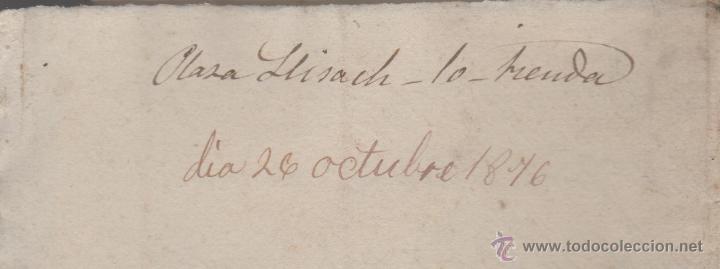 Plaza Llisach - 10 - tienda
dia 26 octubre 1876
www.todocoleccion.net